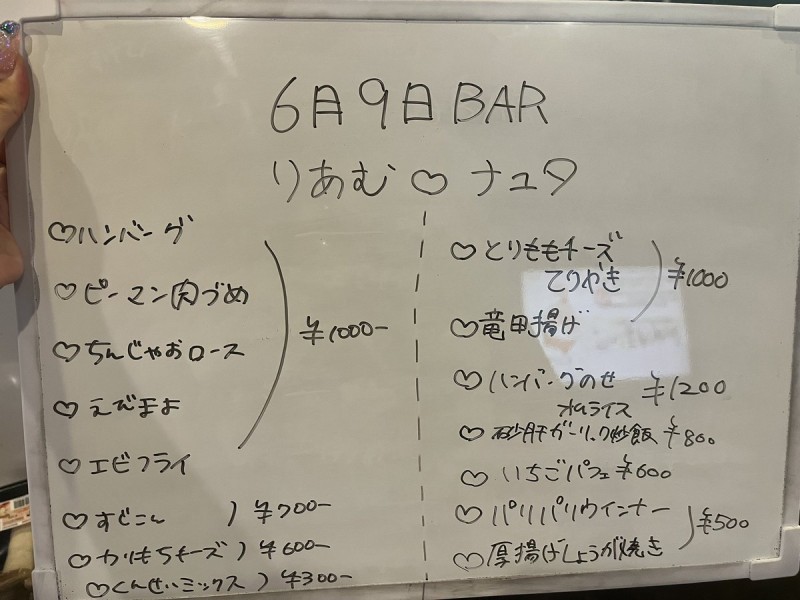 6月9日 BAR
りあむ♡ナユタ
♡ハンバーグ
♡ピーマン肉づめ
♡ちんじゃおロース
♡えびまよ
♡エビフライ
¥1000-
♡すじこん ) ¥700-
♡かりもちチーズ ) ¥600-
♡くんせいミックス ) ¥300-
♡とりももチーズ
てりやき
♡竜田揚げ
¥1000
♡ハンバーグのせ
オムライス ¥1200
♡砂肝ガーリック炒飯 ¥800
♡いちごパフェ ¥600
♡パリパリウインナー
♡厚揚げしょうが焼き
¥500